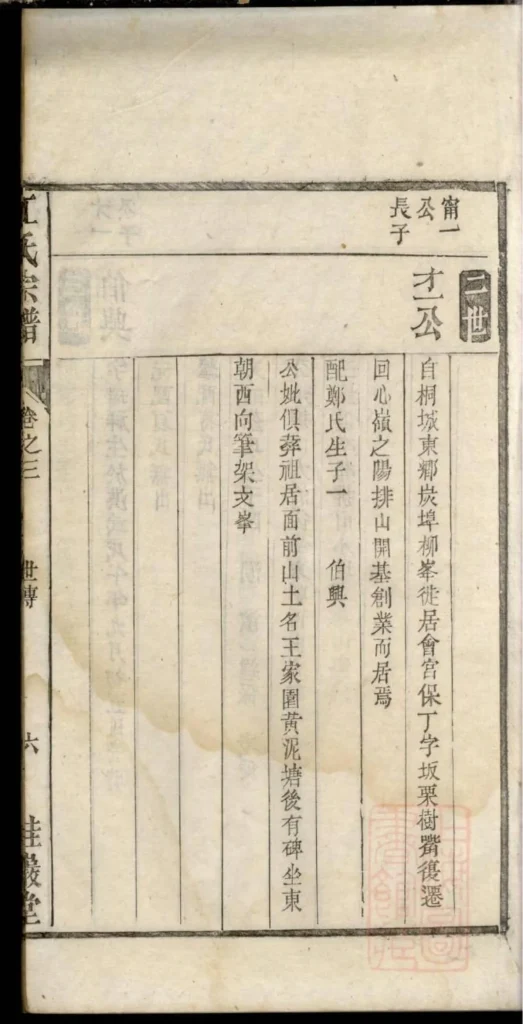 二世
甯一公長子
才一公
自桐城東鄉炭埠柳峯徙居會宮保丁字坂栗樹嘴復遷
回心嶺之陽排山開基創業而居焉
配鄭氏生子一　伯興
公妣俱葬祖居面前山土名王家園黄泥塘後有碑坐東
朝西向筆架文峯
氏宗譜　卷之三　世傳　六　巖堂